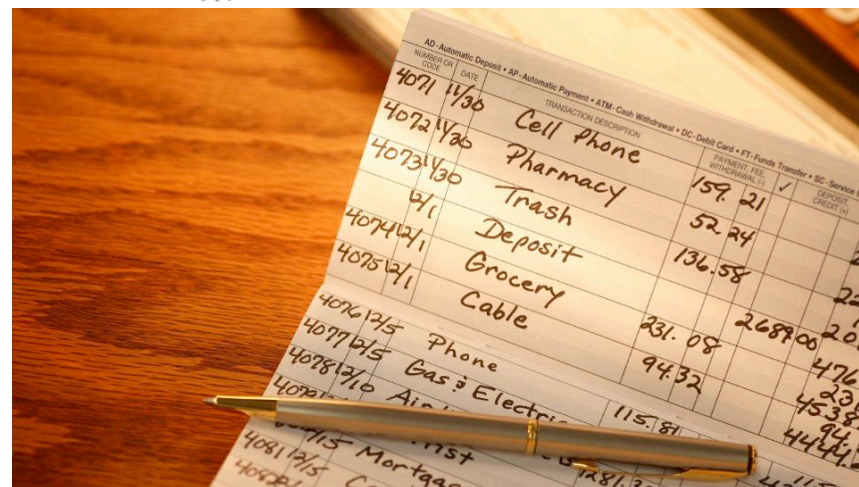 AD-Automatic Deposit • AP-Automatic Payment • ATM-Cash Withdrawal • DC-Debit Card • FT-Funds Transfer • SC-Service
NUMBER OR CODE DATE TRANSACTION DESCRIPTION PAYMENT, FEE, WITHDRAWAL (-) ✓ DEPOSIT, CREDIT (+)
4071 11/30 Cell Phone 159.21
4072 11/30 Pharmacy 52.24
4073 11/30 Trash 136.58
12/1 Deposit 2689.00
4074 12/1 Grocery 231.08 476
4075 12/1 Cable 94.32 4538
4076 12/5 Phone 115.81 4444
4077 12/5 Gas & Electric
4078 12/10
4081 12/15 Mortgag